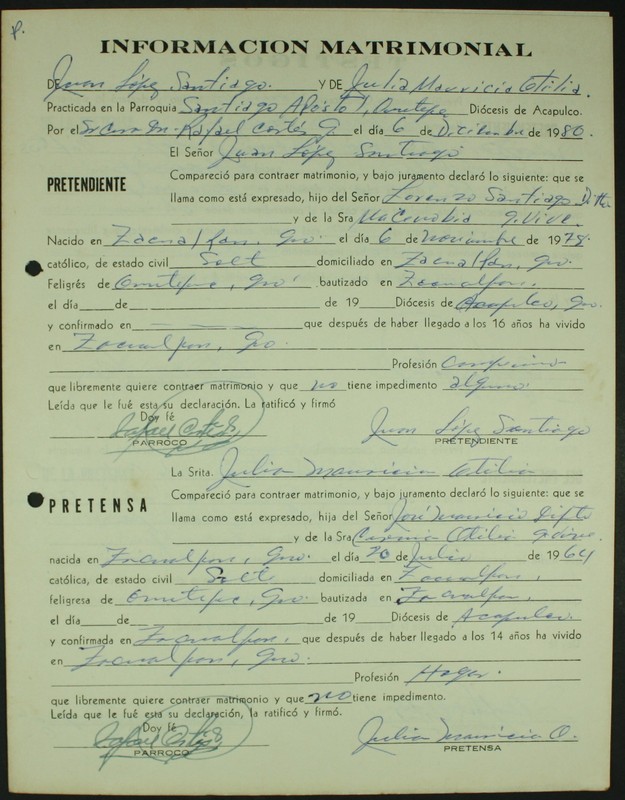 P.
INFORMACION MATRIMONIAL
DE Juan López Santiago. Y DE Julia Mauricio Otilia.
Practicada en la Parroquia Santiago Apóstol, Ometepe Diócesis de Acapulco.
Por el Sr Cura Dn. Rafael Cortés G. el día 6 de Diciembre de 1980.
El Señor Juan López Santiago
PRETENDIENTE
Compareció para contraer matrimonio, y bajo juramento declaró lo siguiente: que se
llama como está expresado, hijo del Señor Lorenzo Santiago
y de la Sra. Macrobia q. vive.
Nacido en Zacualpan, Gro. el día 6 de Noviembre de 197
católico, de estado civil Solt domiciliado en Zacualpan, Gro.
Feligrés de Ometepe, Gro. bautizado en Zacualpan.
el día de de 19 Diócesis de Acapulco, Gro.
y confirmado en que después de haber llegado a los 16 años ha vivido
en Zacualpan, Gro.
Profesión Campesino
que libremente quiere contraer matrimonio y que no tiene impedimento alguno.
Leída que le fué esta su declaración. La ratificó y firmó
Doy fé
Rafael Cortés G. Juan López Santiago
PARROCO PRETENDIENTE
La Srita. Julia Mauricio Otilia
PRETENSA
Compareció para contraer matrimonio, y bajo juramento declaró lo siguiente: que se
llama como está expresado, hija del Señor José Mauricio
y de la Sra. Otilia
nacida en Zacualpan, Gro. el día 20 de Julio de 1964
católica, de estado civil Solt domiciliada en Zacualpan.
feligresa de Ometepe, Gro. bautizada en Zacualpan.
el día de de 19 Diócesis de Acapulco.
y confirmada en Zacualpan. que después de haber llegado a los 14 años ha vivido
en Zacualpan, Gro.
Profesión Hogar.
que libremente quiere contraer matrimonio y que no tiene impedimento.
Leída que le fué esta su declaración, la ratificó y firmó.
Doy fé
Rafael Cortés G Julia Mauricio O.
PARROCO PRETENSA